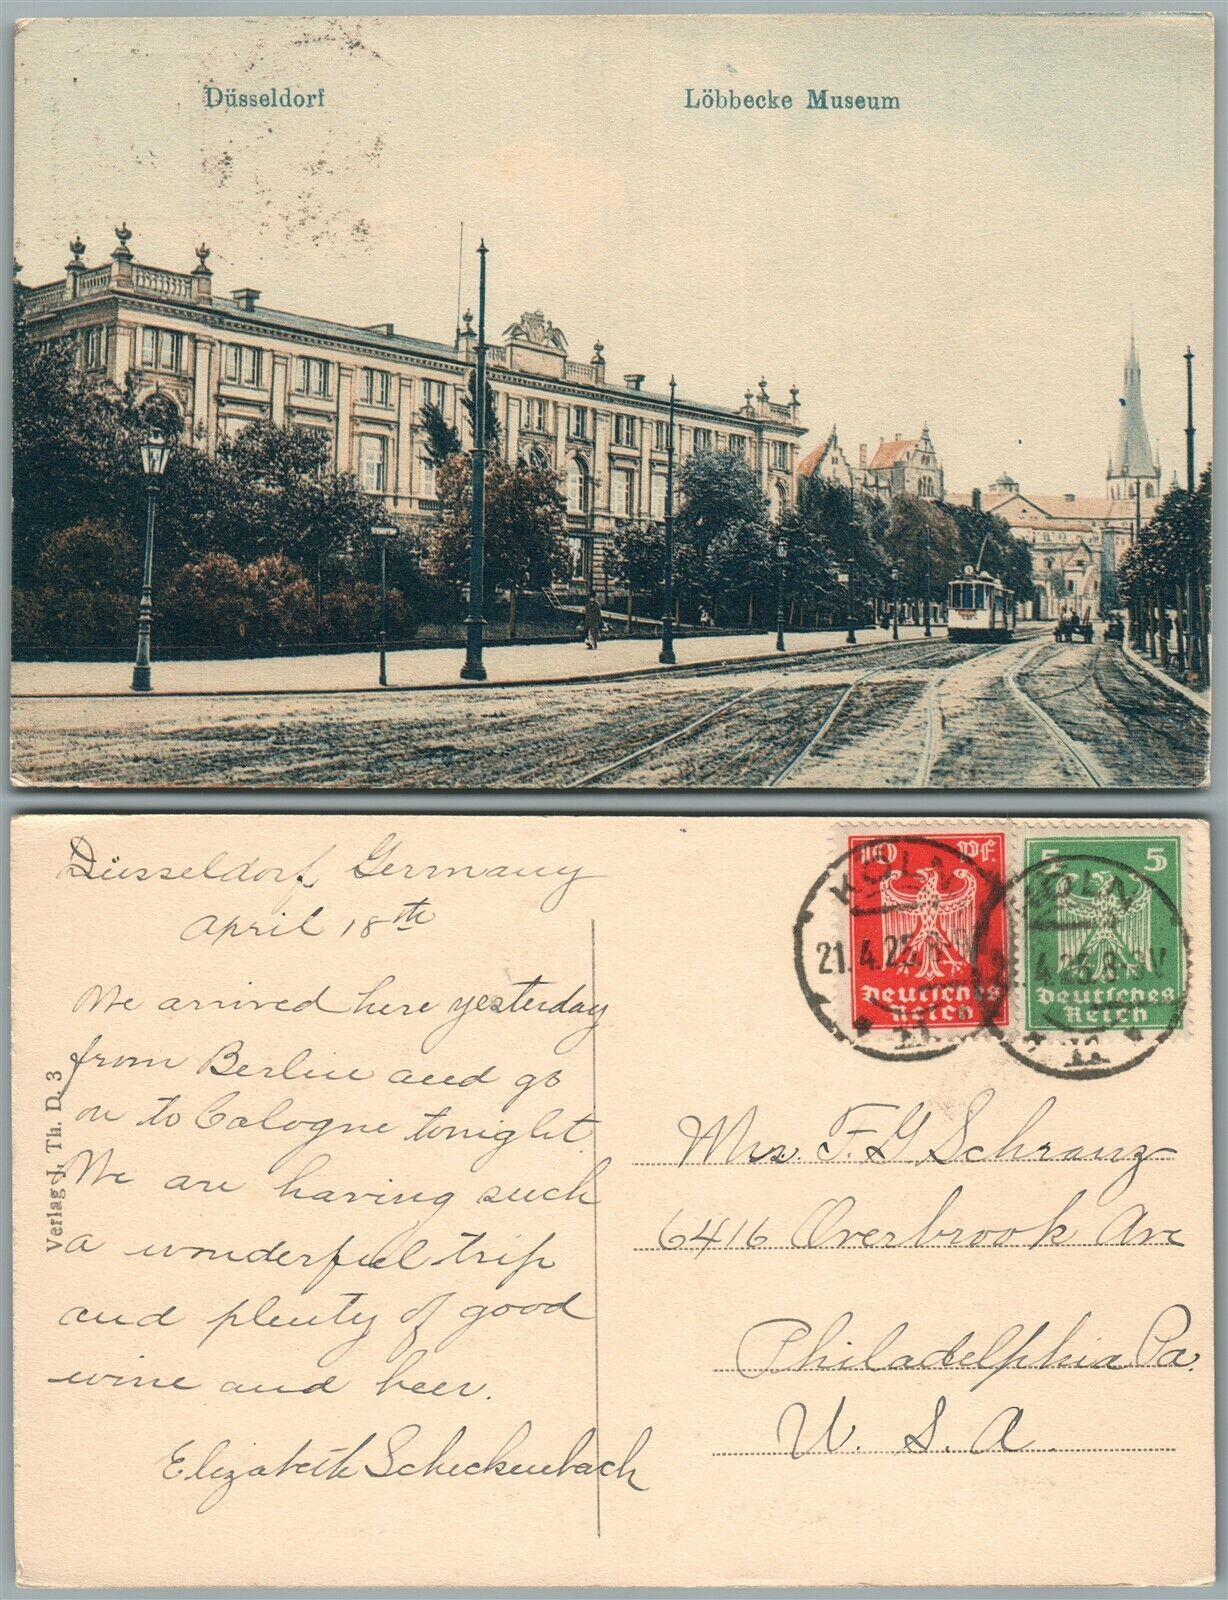 Düsseldorf
Löbbecke Museum
Düsseldorf, Germany
April 18th
We arrived here yesterday
from Berlin and go
on to Cologne tonight.
We are having such
a wonderful trip
and plenty of good
wine and beer.
Elizabeth Scheckenbach
Verlag J. Th. D. 3
10 Pf.
Deutsches
Reich
5 5
Deutsches
Reich
KÖLN
21.4.25.
KÖLN
21.4.25.8-9V
Mrs. F. G. Schranz
6416 Overbrook Ave
Philadelphia Pa.
U. S. A.